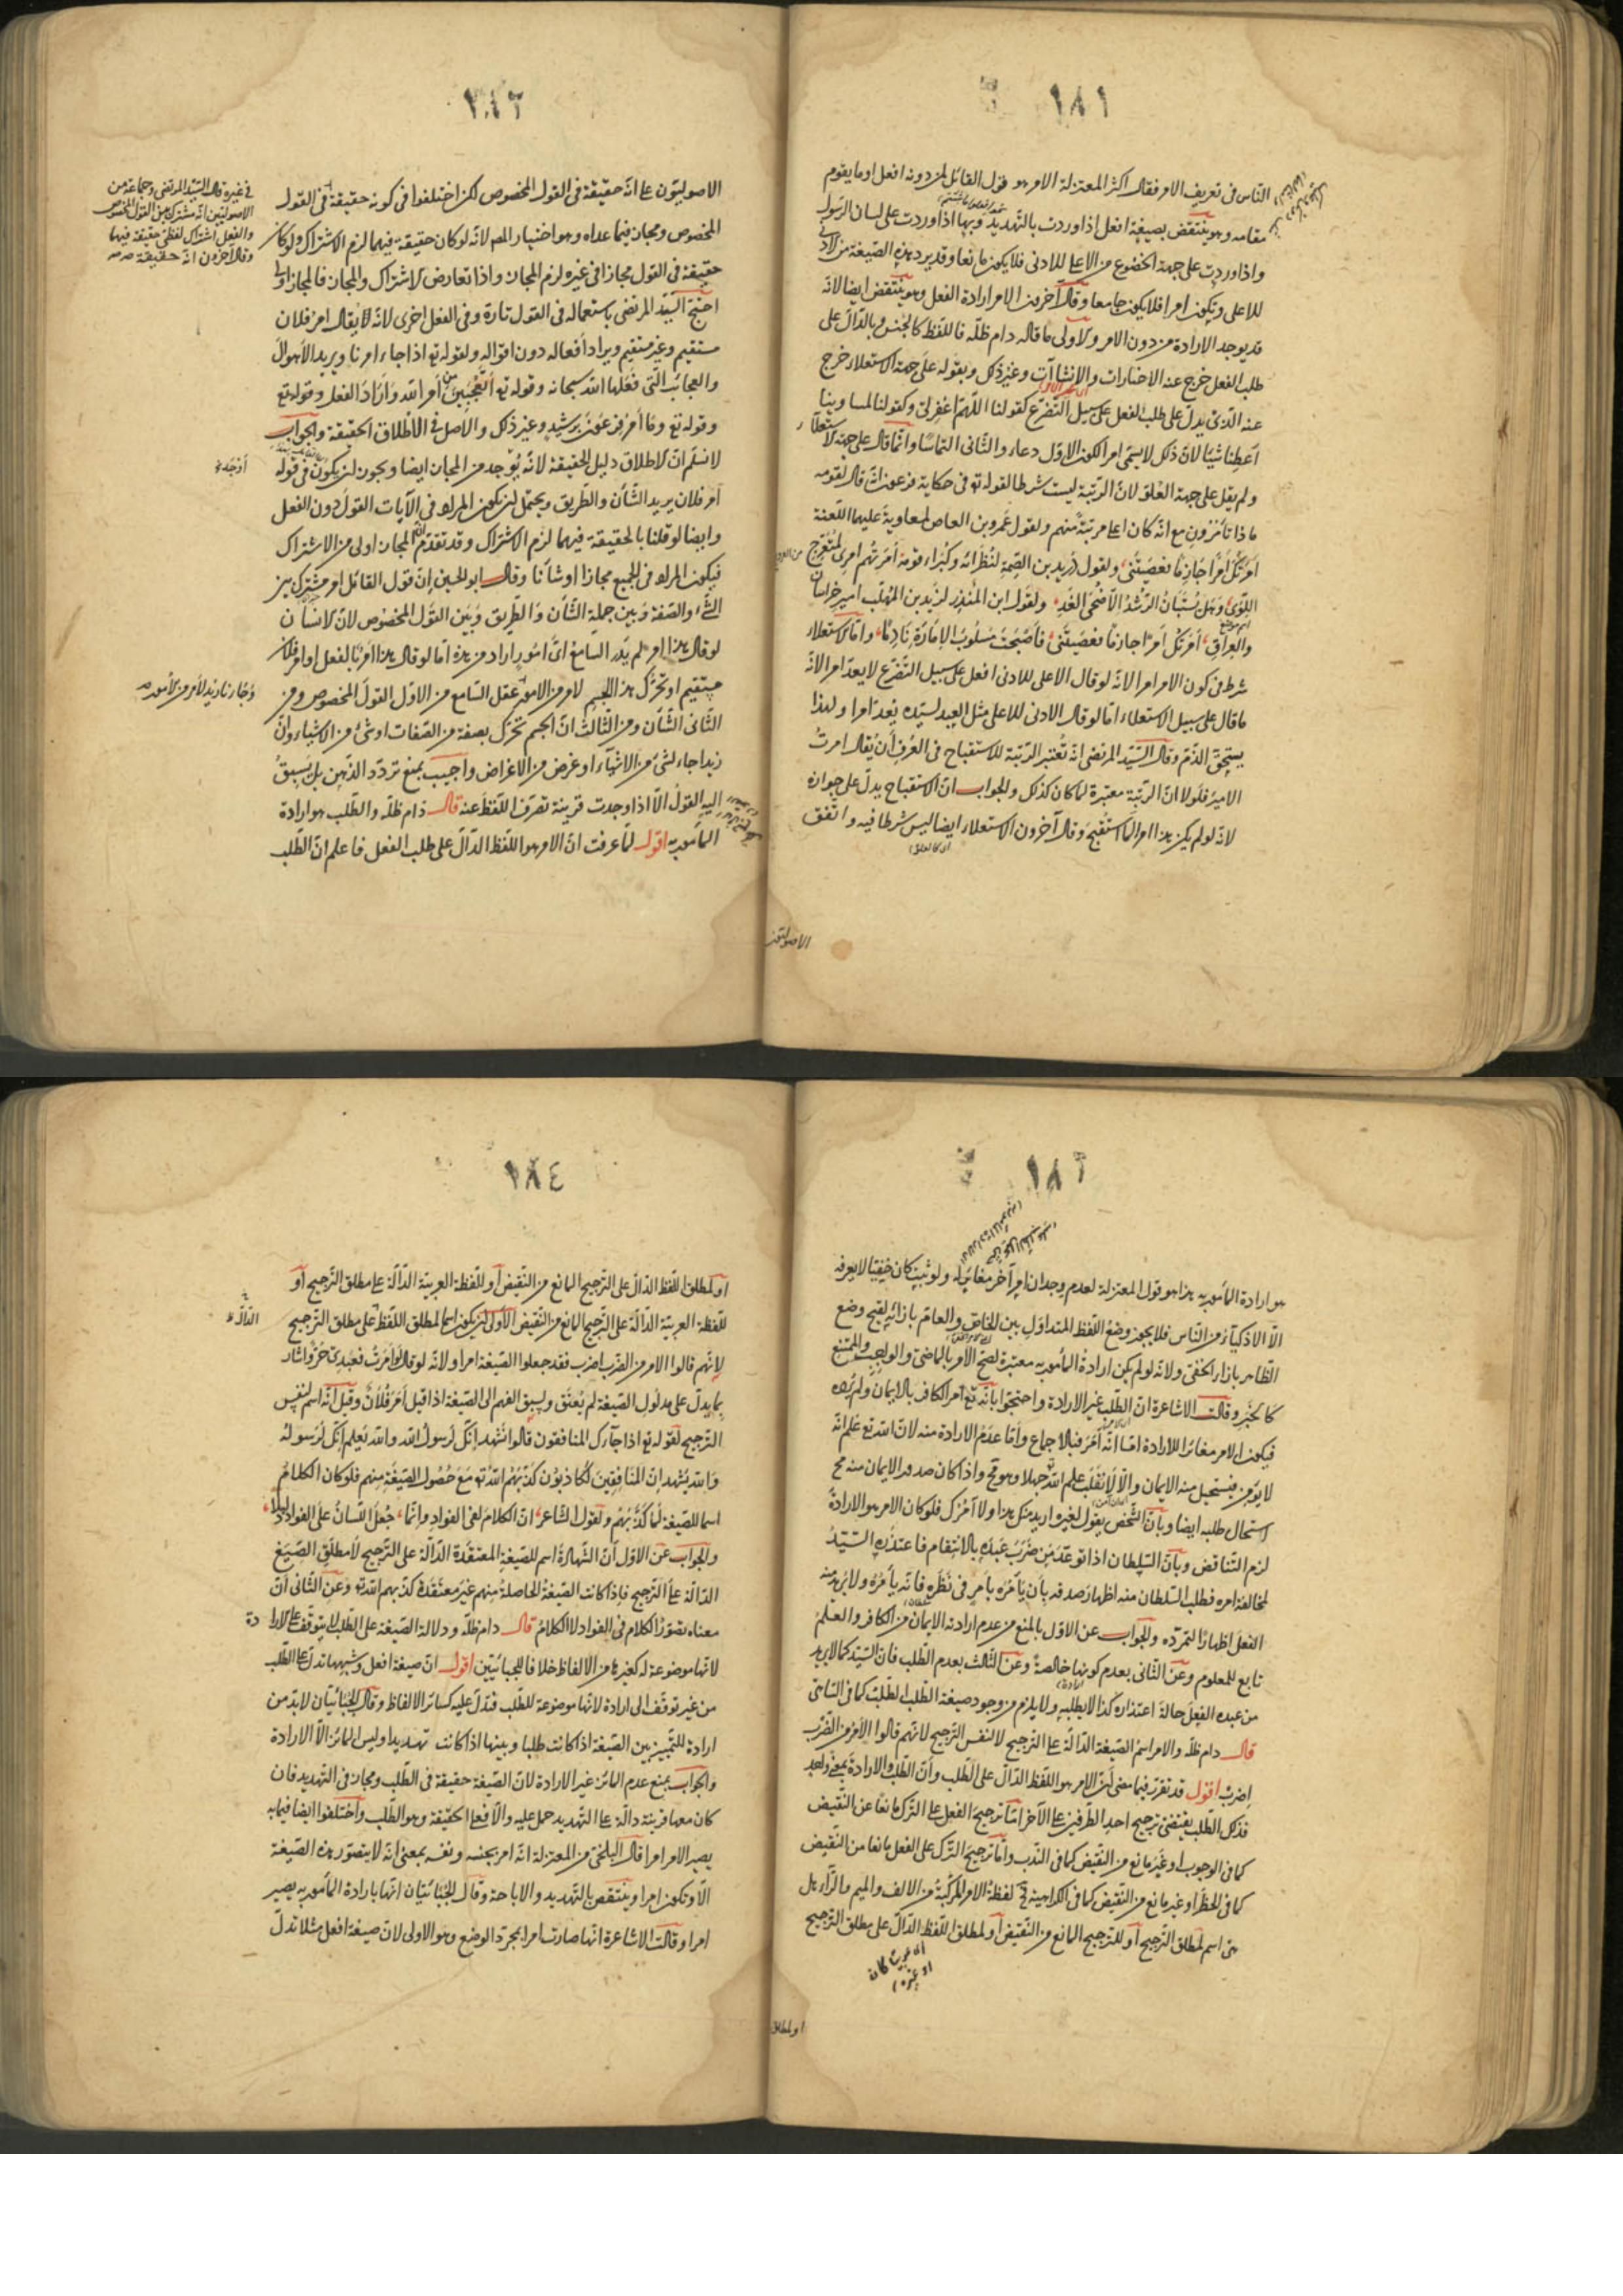 ١٨١
الناس فى تعريف الامر فقال اكثر المعتزلة الامر هو قول القائل لمن دونه افعل او ما يقوم
مقامه وهو ينتقض بصيغة افعل اذا وردت بالتهديد وبها اذا وردت على لسان الرسول
واذا وردت على جهة الخضوع من الاعلى للادنى فلا يكون مانعا وقد يرد بهذه الصيغة من الادنى
للاعلى ويكون امرا فلا يكون جامعا وقال آخرون الامر ارادة الفعل وهو ينتقض ايضا لانه
قد يوجد الارادة من دون الامر والاولى ما قاله دام ظله فاللفظ كالجنس وبالدال على
طلب الفعل خرج عنه الاخبارات والانشاآت وغير ذلك وبقوله على جهة الاستعلاء خرج
عنه الذى يدل على طلب الفعل على سبيل التضرع كقولنا اللهم اغفر لى وكقولنا لمساوينا
اعطنا شيئا لان ذلك لا يسمى امرا لكون الاول دعاء والثانى التماسا وانما قال على جهة الاستعلاء
ولم يقل على جهة العلو لان الرتبة ليست شرطا لقوله تع فى حكاية فرعون انه قال لقومه
ماذا تأمرون مع انه كان اعلى مرتبة منهم ولقول عمرو بن العاص لمعاوية عليهما اللعنة
امرتك امرا جازما فعصيتنى ولقول دريد بن الصمة لنظرائه وكبراء قومه امرتهم امرى بمنعرج
اللوى وهل يستبان الرشد الا ضحى الغد ولقول ابن المنذر ليزيد بن المهلب امير خراسان
والعراق امرتك امرا جازما فعصيتنى فاصبحت مسلوب الامارة نادما واما الاستعلاء
شرط فى كون الامر امرا لانه لو قال الاعلى للادنى افعل على سبيل التضرع لا يعد امرا لانه
ما قال على سبيل الاستعلاء اما لو قال الادنى للاعلى مثل العبد لسيده يعد امرا ولهذا
يستحق الذم وقال السيد المرتضى انه تعتبر الرتبة للاستقباح فى العرف ان يقال امرت
الامير فلولا ان الرتبة معتبرة لما كان كذلك والجواب ان الاستقباح يدل على جوازه
لانه لو لم يكن هذا امرا لما استقبح وقال آخرون الاستعلاء ايضا ليس شرطا فيه واتفق
الاصوليون
الاصوليون على انه حقيقة فى القول المخصوص لكن اختلفوا فى كونه حقيقة فى القول
المخصوص ومجاز فيما عداه وهو اختيار المصـ لانه لو كان حقيقة فيهما لزم الاشتراك ولو كان
حقيقة فى القول مجازا فى غيره لزم المجاز واذا تعارض الاشتراك والمجاز فالمجاز اولى
احتج السيد المرتضى باستعماله فى القول تارة وفى الفعل اخرى لانه يقال امر فلان
مستقيم وغير مستقيم ويراد افعاله دون اقواله ولقوله تع اذا جاء امرنا ويريد الاهوال
والعجائب التى فعلها الله سبحانه وقوله تع أتعجبين من أمر الله وأراد الفعل وقوله تع
وقوله تع وما أمر فرعون برشيد وغير ذلك والاصل فى الاطلاق الحقيقة والجواب
لا نسلم ان الاطلاق دليل الحقيقة لانه يوجد من المجاز ايضا ويجوز ان يكون فى قوله
امر فلان يريد الشأن والطريق ويحتمل ان يكون المراد فى الآيات القول دون الفعل
وايضا لو قلنا بالحقيقة فيهما لزم الاشتراك وقد تقدم ان المجاز اولى من الاشتراك
فيكون المراد فى الجميع مجازا او شأنا وقال ابو الحسين ان قول القائل امر مشترك بين
الشىء والصفة وبين جملة الشأن والطريق وبين القول المخصوص لان الانسان
لو قال هذا امر لم يدر السامع اى امور اراد من هذه اما لو قال هذا امر بالفعل او امر فلان
مستقيم او تحرك هذا الجسم لامر من الامور عقل السامع من الاول القول المخصوص ومن
الثانى الشأن ومن الثالث ان الجسم تحرك بصفة من الصفات او شىء من الاشياء وان
زيدا جاء لشىء من الاشياء او غرض من الاغراض واجيب بمنع تردد الذهن بل يسبق
اليه القول الا اذا وجدت قرينة تصرف اللفظ عنه قال دام ظله والطلب هو ارادة
المأمور به اقول لما عرفت ان الامر هو اللفظ الدال على طلب الفعل فاعلم ان الطلب
فى غيره قال السيد المرتضى وجماعة من
الاصوليين انه مشترك بين القول المخصوص
والفعل اشتراك لفظى حقيقة فيهما
وقال آخرون انه حقيقة
وجاءنا زيد لامر من الامور
١٨٢
هو ارادة المأمور به هذا هو قول المعتزلة لعدم وجدان امر آخر مغاير له ولو ثبت كان خفيا لا يعرفه
الا الاذكياء من الناس فلا يجوز وضع اللفظ المتداول بين الخاص والعام بازائه لقبح وضع
الظاهر بازاء الخفى ولانه لو لم يكن ارادة المأمور به معتبرة لصح الامر بالماضى والواجب والممتنع
كالخبر وقالت الاشاعرة ان الطلب غير الارادة واحتجوا بانه تع امر الكافر بالايمان ولم يرده
فيكون الامر مغائرا للارادة اما انه امر فبالاجماع واما عدم الارادة منه لان الله تع علم انه
لا يؤمن فيستحيل منه الايمان والا لانقلب علم الله جهلا وهو مح واذا كان صدور الايمان منه مح
استحال طلبه ايضا وبان الشخص يقول لغيره اريد منك هذا ولا آمرك فلو كان الامر هو الارادة
لزم التناقض وبان السلطان اذا توعد من ضرب عبده بالانتقام فاعتذر السيد
لمخالفة امره فطلب السلطان منه اظهار صدقه بان يأمره بأمر فى نظره فانه يأمره ولا يريد منه
الفعل اظهارا لتمرده والجواب عن الاول بالمنع من عدم ارادته الايمان من الكافر والعلم
تابع للمعلوم وعن الثانى بعدم كونها خالصة وعن الثالث بعدم الطلب فان السيد كما لا يريد
من عبده الفعل حالة اعتذاره كذا لا يطلبه ولا يلزم من وجود صيغة الطلب الطلب كما فى الساهى
قال دام ظله والامر اسم الصيغة الدالة على الترجيح لا لنفس الترجيح لانهم قالوا الامر من الضرب
اضرب اقول قد تقرر فيما مضى ان الامر هو اللفظ الدال على الطلب وان الطلب والارادة بمعنى واحد
فذلك الطلب يقتضى ترجيح احد الطرفين على الآخر اما ترجيح الفعل على الترك مانعا عن النقيض
كما فى الوجوب او غير مانع من النقيض كما فى الندب واما ترجيح الترك على الفعل مانعا من النقيض
كما فى الحظر او غير مانع من النقيض كما فى الكراهية فى لفظة الامر المركبة من الالف والميم والراء هل
هى اسم لمطلق الترجيح او للترجيح المانع من النقيض او لمطلق اللفظ الدال على مطلق الترجيح
او لمطلق
١٨٤
او لمطلق اللفظ الدال على الترجيح المانع من النقيض او للفظة العربية الدالة على مطلق الترجيح او
للفظة العربية الدالة على الترجيح المانع من النقيض الاولى ان يكون اسما لمطلق اللفظ على مطلق الترجيح
لانهم قالوا الامر من الضرب اضرب فقد جعلوا الصيغة امرا ولانه لو قال ان امرت فعبدى حر واشار
بما يدل على مدلول الصيغة لم يعتق ويسبق الفهم الى الصيغة اذا قيل امر فلان وقيل انه اسم لنفس
الترجيح لقوله تع اذا جاءك المنافقون قالوا نشهد انك لرسول الله والله يعلم انك لرسوله
والله يشهد ان المنافقين لكاذبون كذبهم الله تع مع حصول الصيغة منهم فلو كان الكلام
اسما للصيغة لما كذبهم ولقول الشاعر ان الكلام لفى الفواد وانما جعل اللسان على الفواد دليلا
والجواب عن الاول ان الشهادة اسم للصيغة المعتقدة الدالة على الترجيح لا مطلق الصيغ
الدالة على الترجيح فاذا كانت الصيغة الحاصلة منهم غير معتقدة كذبهم الله تع وعن الثانى ان
معناه تصور الكلام فى الفواد لا الكلام قال دام ظله ودلالة الصيغة على الطلب لا يتوقف على الارادة
لانها موضوعة له كغيرها من الالفاظ خلافا للجبائيين اقول ان صيغة افعل وشبهها تدل على الطلب
من غير توقف الى ارادة لانها موضوعة للطلب فتدل عليه كسائر الالفاظ وقال الجبائيان لا بد من
ارادة للتمييز بين الصيغة اذا كانت طلبا وبينها اذا كانت تهديدا وليس المائز الا الارادة
والجواب بمنع عدم المائز غير الارادة لان الصيغة حقيقة فى الطلب ومجاز فى التهديد فان
كان معها قرينة دالة على التهديد حمل عليه والا فعلى الحقيقة وهو الطلب واختلفوا ايضا فيما به
يصير الامر امرا قال البلخى من المعتزلة انه امر بجنسه ونفسه بمعنى انه لا يتصور هذه الصيغة
الا وتكون امرا وينتقض بالتهديد والاباحة وقال الجبائيان انها بارادة المأمور به يصير
امرا وقالت الاشاعرة انها صارت امرا بمجرد الوضع وهو الاولى لان صيغة افعل مثلا تدل